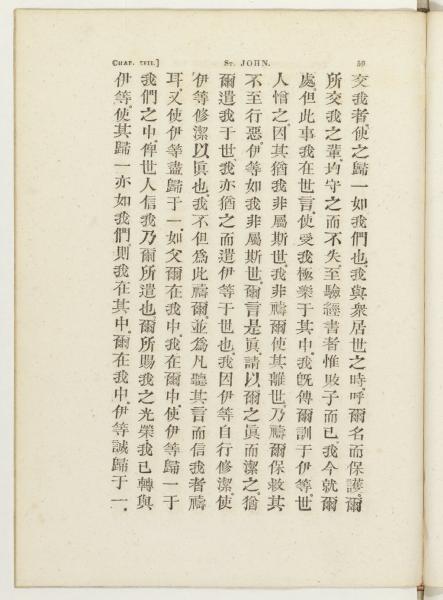 CHAP. XVII.] ST. JOHN. 59
交我者使之歸一如我們也我與衆居世之時呼爾名而保護爾
所交我之輩均守之而不失至驗經書者惟敗子而已我今就爾
處但此事我在世言使受我極樂于其中我旣傳爾訓于伊等世
人憎之因其猶我非屬斯世我非禱爾使其離世乃禱爾保救其
不至行惡伊等如我非屬斯世爾言是眞請以爾之眞而潔之猶
爾遣我于世我亦猶之而遣伊等于世也我因伊等自行修潔使
伊等修潔以眞也我不但爲此禱爾並爲凡聽其言而信我者禱
耳又使伊等盡歸于一如父爾在我中我在爾中使伊等歸一于
我們之中俾世人信我乃爾所遣也爾所賜我之光榮我已轉與
伊等使其歸一亦如我們則我在其中爾在我中伊等誠歸于一